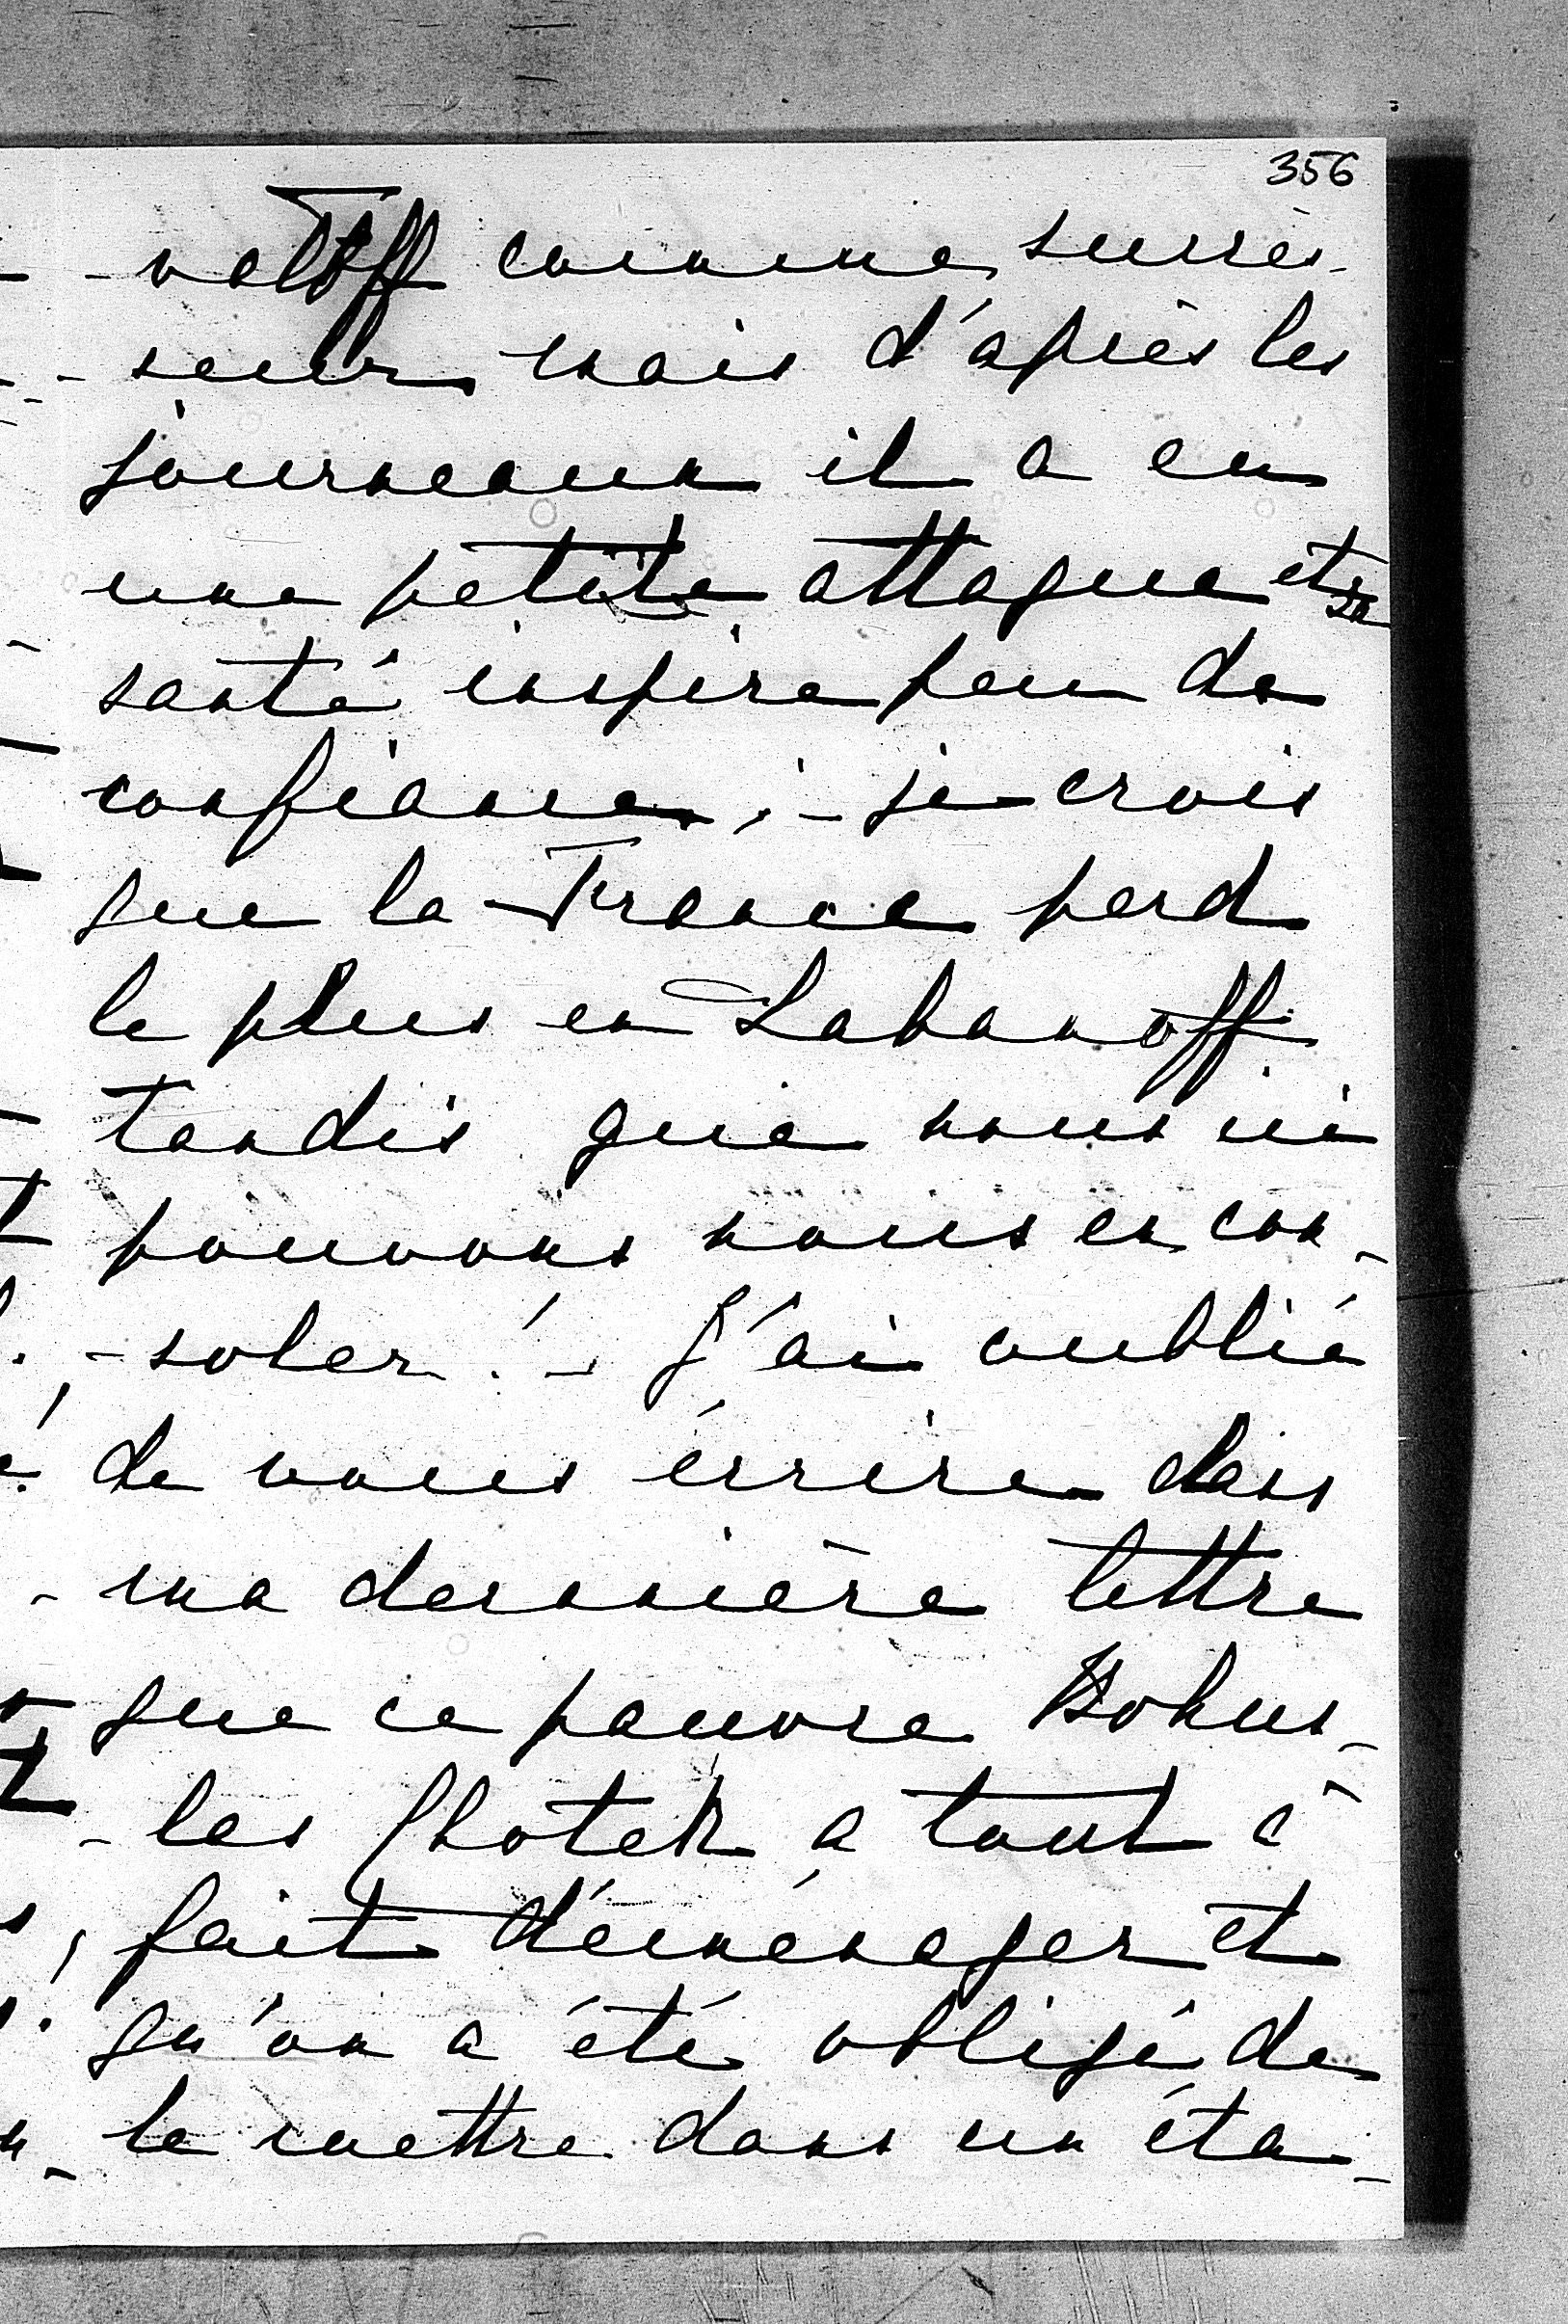 356
-valoff comme succes-
-seur mais d'après les
journeaux il a eu
une petite attaque et sa
santé inspire peu de
confiance; - je crois
que la France perd
le plus en Labanoff
tandis que nous ne
pouvons nous en con-
-soler! - J'ai oublié
de vous écrire dans
ma dernière lettre
que ce pauvre Bohus-
-las Chotek a tout à
fait déménager et
qu'on a été obligé de
le mettre dans un éta-